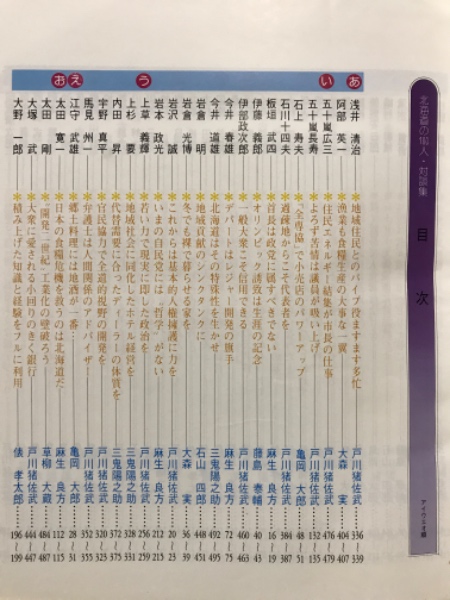 北海道の偉人・対談集
目次
アイウエオ順
あ
浅井 清治 ＊地域住民とのパイプ役ますます多忙 戸川猪佐武 336〜339
阿部 英一 ＊漁業も食糧生産の大事な一翼 大森 実 404〜407
い
五十嵐広三 ＊住民エネルギー結集が市長の仕事 戸川猪佐武 476〜479
五十嵐長寿 ＊よろず苦情は議員が吸い上げ 戸川猪佐武 132〜135
石上 寿夫 ＊“全専協”で小売店のパワーアップ 亀岡 大郎 48〜51
石川十四夫 ＊過疎地からこそ代表者を 戸川猪佐武 384〜387
板垣 武四 ＊首長は政党に属すべきでない 麻生 良方 16〜19
伊藤 義郎 ＊オリンピック誘致は生涯の記念 藤島 泰輔 40〜43
伊部政次郎 ＊一般大衆こそ信用できる 戸川猪佐武 460〜463
今井 春雄 ＊デパートはレジャー開発の旗手 麻生 良方 72〜75
今井 道雄 ＊北海道はその特殊性を生かせ 三鬼陽之助 492〜495
岩倉 明 ＊地域貢献のシンクタンクに 石山 四郎 448〜451
岩倉 光博 ＊冬でも裸で暮らせる家を 大森 実 36〜39
岩沢 誠 ＊これからは基本的人権擁護に力を 戸川猪佐武 20〜23
岩本 政光 ＊いまの自民党には“哲学”がない 麻生 良方 212〜215
う
上草 義輝 ＊若い力で現実に即した政治を 戸川猪佐武 256〜259
上杉 要 ＊地域社会に同化したホテル経営を 三鬼陽之助 328〜331
内田 昇 ＊代替需要に合ったディーラーの体質を 三鬼陽之助 372〜375
宇野 真平 ＊官民協力で全道的視野の開発を 戸川猪佐武 320〜323
馬見 州一 ＊弁護士は人間関係のアドバイザー 戸川猪佐武 352〜355
え
江守 武雄 ＊郷土料理には地酒が一番 亀岡 大郎 28〜31
お
太田 寛一 ＊日本の食糧危機を救うのは北海道だ 麻生 良方 112〜115
太田 剛 ＊“開発二世紀”工業化の壁破ろう 草柳 大蔵 484〜487
大塚 武 ＊大衆に愛される小回りのきく銀行 戸川猪佐武 444〜447
大野 一郎 ＊積み上げた知識と経験をフルに利用 俵 孝太郎 196〜199